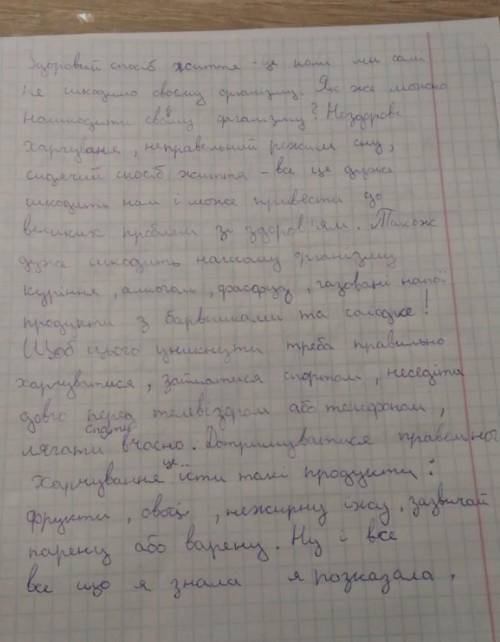 Здоровий спосіб життя - це коли ми самі
не шкодимо своєму організму. Як же можна
нашкодити своєму організму? Нездорове
харчування, неправельний режим сну,
сидячий спосіб життя - все це дуже
шкодить нам і може привести до
великих проблем зі здоров'ям. Також
дуже шкодить нашому організму
куріння, алкоголь, фастфуд, газовані напої
продукти з барвниками та солодке!
Щоб цього уникнути треба правильно
харчуватися, займатися спортом, несидіти
довго перед телевізором або телефоном,
лягати спати вчасно. Дотримуватися правильного
харчування це їсти такі продукти:
фрукти, овочі, нежирну їжу, зазвичай
парену або варену. Ну і все
все що я знала я розказала.